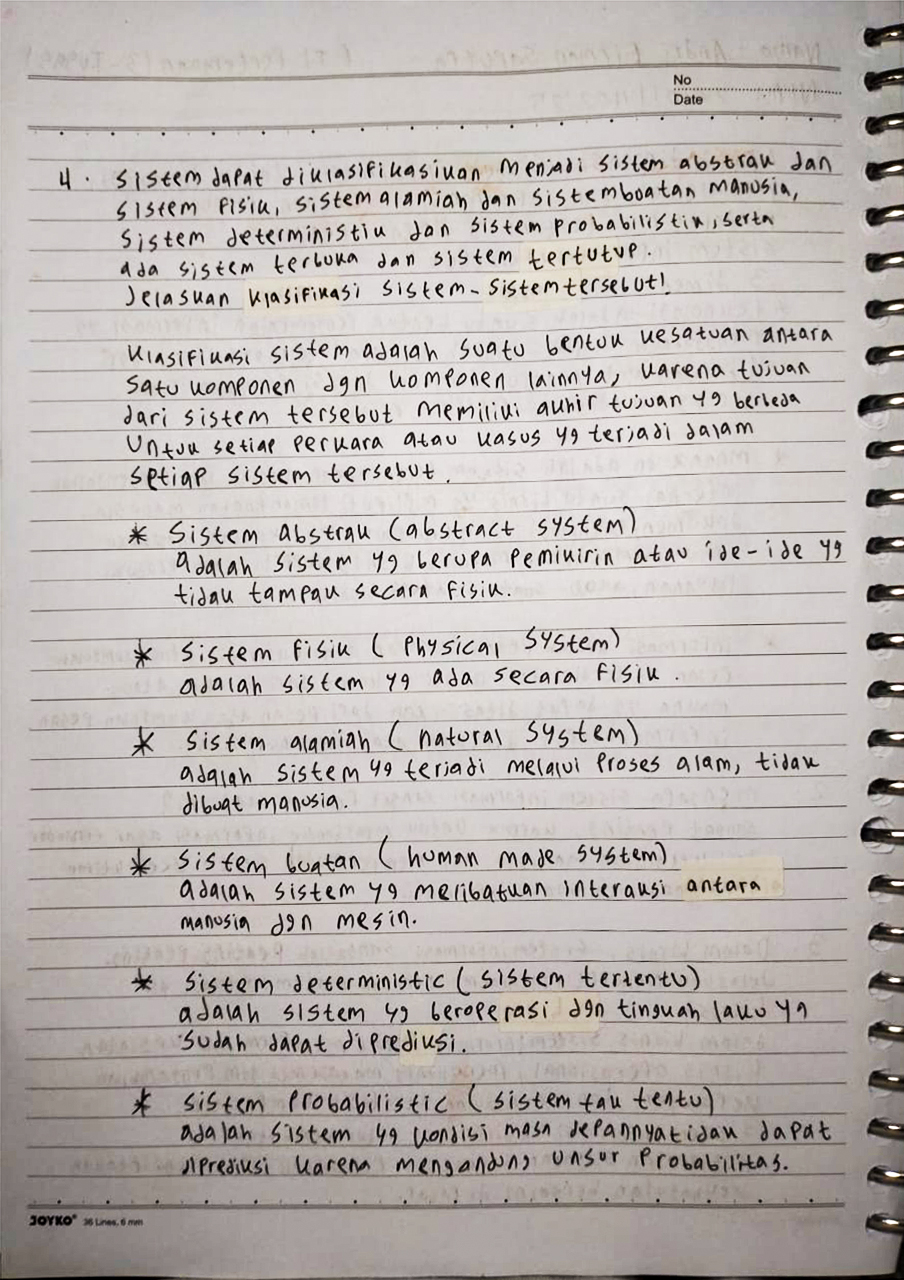 No
Date
4. Sistem dapat diklasifikasikan menjadi sistem abstrak dan
sistem fisik, sistem alamiah dan sistem buatan manusia,
sistem deterministik dan sistem probabilistik, serta
ada sistem terbuka dan sistem tertutup.
Jelaskan klasifikasi sistem-sistem tersebut!
Klasifikasi sistem adalah suatu bentuk kesatuan antara
satu komponen dgn komponen lainnya, karena tujuan
dari sistem tersebut memiliki akhir tujuan yg berbeda
untuk setiap perkara atau kasus yg terjadi dalam
setiap sistem tersebut.
* Sistem abstrak (abstract system)
adalah sistem yg berupa pemikirin atau ide-ide yg
tidak tampak secara fisik.
* Sistem fisik (Physical System)
adalah sistem yg ada secara fisik.
* Sistem alamiah (natural System)
adalah sistem yg terjadi melalui proses alam, tidak
dibuat manusia.
* Sistem buatan (human made system)
adalah sistem yg melibatkan interaksi antara
manusia dgn mesin.
* Sistem deterministic (sistem tertentu)
adalah sistem yg beroperasi dgn tingkah laku yg
sudah dapat diprediksi.
* Sistem Probabilistic (sistem tak tentu)
adalah sistem yg kondisi masa depannya tidak dapat
diprediksi karena mengandung unsur Probabilitas.
JOYKO 36 Lines, 6 mm